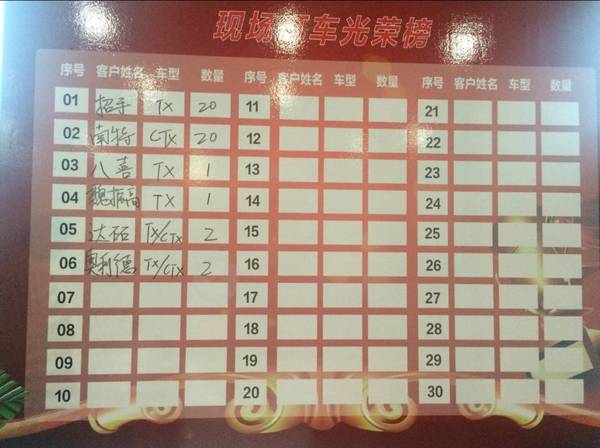 现场订车光荣榜
序号 客户姓名 车型 数量 序号 客户姓名 车型 数量 序号 客户姓名 车型 数量
01 招手 TX 20 11 21
02 南特 CTX 20 12 22
03 八喜 TX 1 13 23
04 魏振高 TX 1 14 24
05 达石 TX/CTX 2 15 25
06 奥利德 TX/CTX 2 16 26
07 17 27
08 18 28
09 19 29
10 20 30